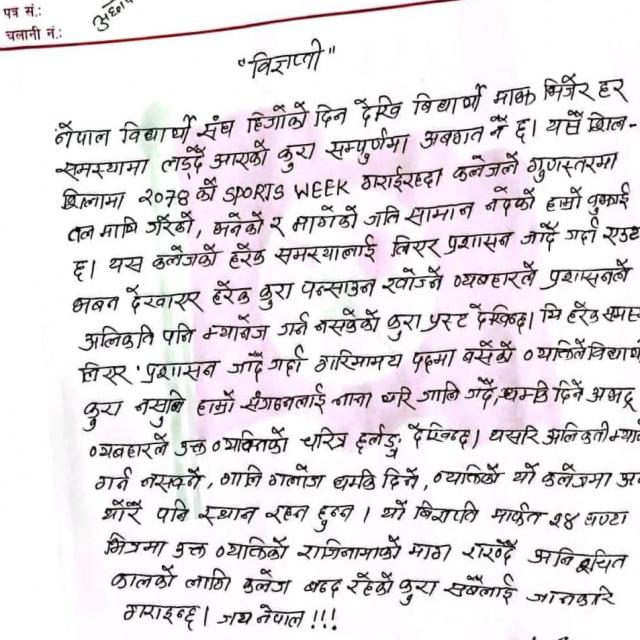 पत्र सं.:
चलानी नं.:
"विज्ञप्ती"
नेपाल विद्यार्थी संघ हिजोको दिन देखि विद्यार्थी माझ भिजेर हर
समस्यामा लड्दै आएको कुरा सम्पूर्णमा अवगत नै छ। यसै शिल-
शिलामा २०७८ को SPORTS WEEK गराईरहदा कलेजले गुणस्तरमा
तल माथि गरेको, भनेको र मागेको जति सामान नदेको हाम्रो बुझाई
छ। यस कलेजको हरेक समस्यालाई लिएर प्रशासन जाँदै गर्दा एउटा
भवन देखाएर हरेक कुरा पन्साउन खोज्ने व्यबहारले प्रशासनले
अलिकति पनि म्यानेज गर्न नसकेको कुरा प्रस्ट देखिन्छ। यि हरेक समस्
लिएर प्रशासन जाँदै गर्दा गारिमामय पदमा बसेको व्यक्तिले विद्यार्थ
कुरा नसुनि हाम्रो संगठनलाई नाना थरि गालि गर्दै, धम्कि दिने अभद्र
व्यबहारले उक्त व्यक्तिको चरित्र छर्लङ्ग देखिन्छ। यसरि अलिकती म्या
गर्न नसक्ने, गालि गलौज धम्कि दिने, व्यक्तिको यो कलेजमा अ
थोरै पनि स्थान रहन हुन्न। यो विज्ञप्ति मार्फत २४ घण्टा
भित्रमा उक्त व्यक्तिको राजिनामाको माग राख्दै अनिश्चित
कालको लागि कलेज बन्द रहेको कुरा सबैलाई जानकारि
गराइन्छ। जय नेपाल !!!